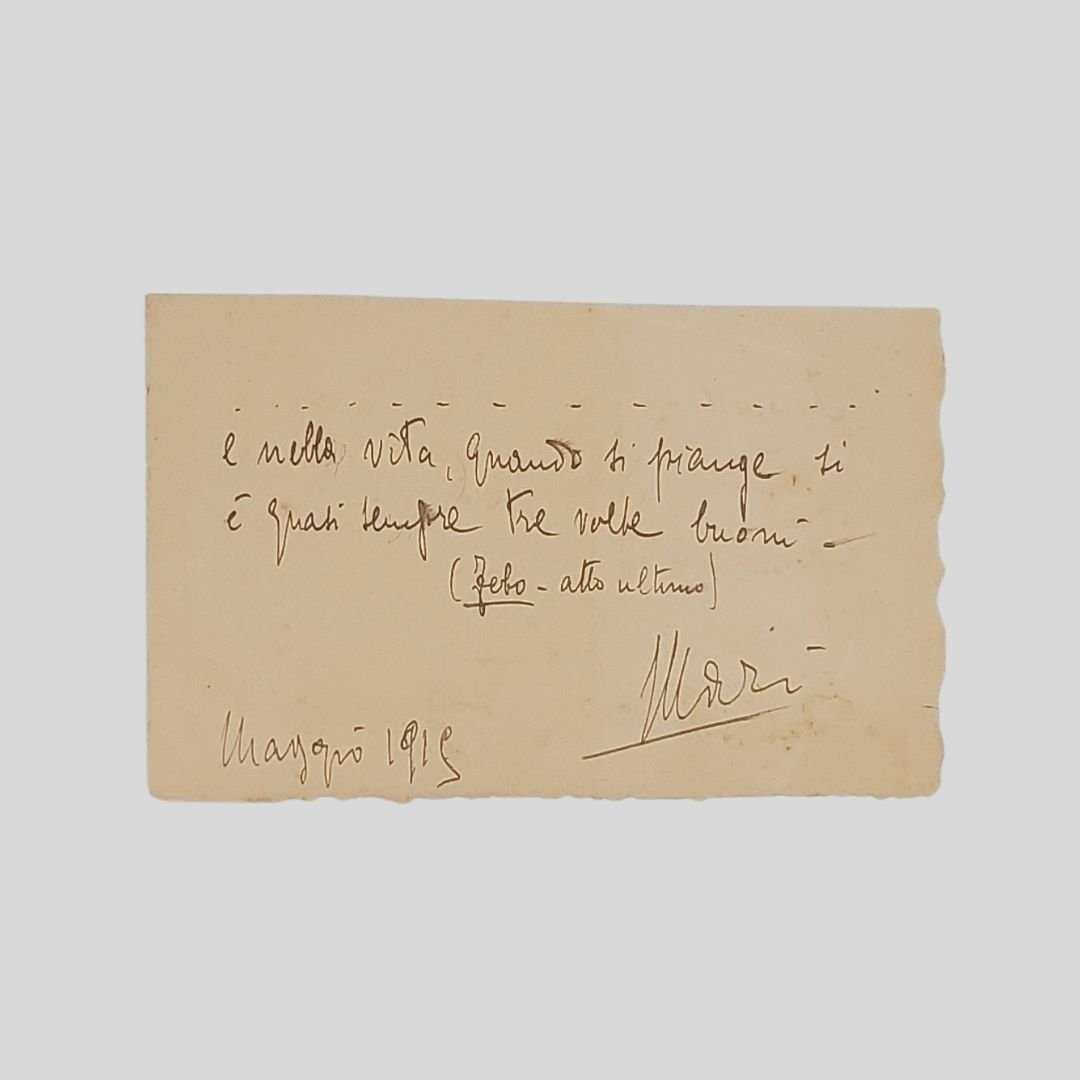 - - - - - - - - - - - - - -
e nella vita, quando si piange si
è quasi sempre tre volte buoni -
(Zebo - atto ultimo)
Mari
Maggio 1915